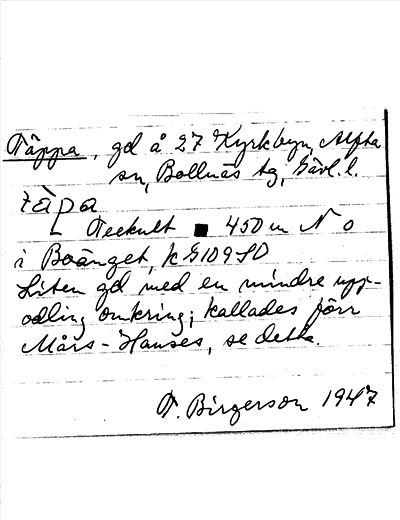 Täppa, gd å 27 Kyrkbyn, Alfta
sn, Bollnäs tg, Gävl. l.
tȧpa
Teckult ■ 450 m N o
i Boänget, k G109SD
Liten gd med en mindre upp-
odling omkring; kallades förr
Mårs-Hanses, se detta.
T. Birgerson 1947